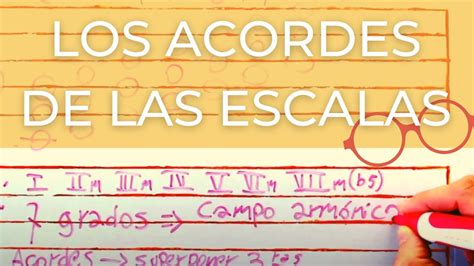 LOS ACORDES
DE LAS ESCALAS
I IIm IIIm IV V VIm VIIm(b5)
7 grados ⇒ Campo armónico
Acordes → superponer 3ras